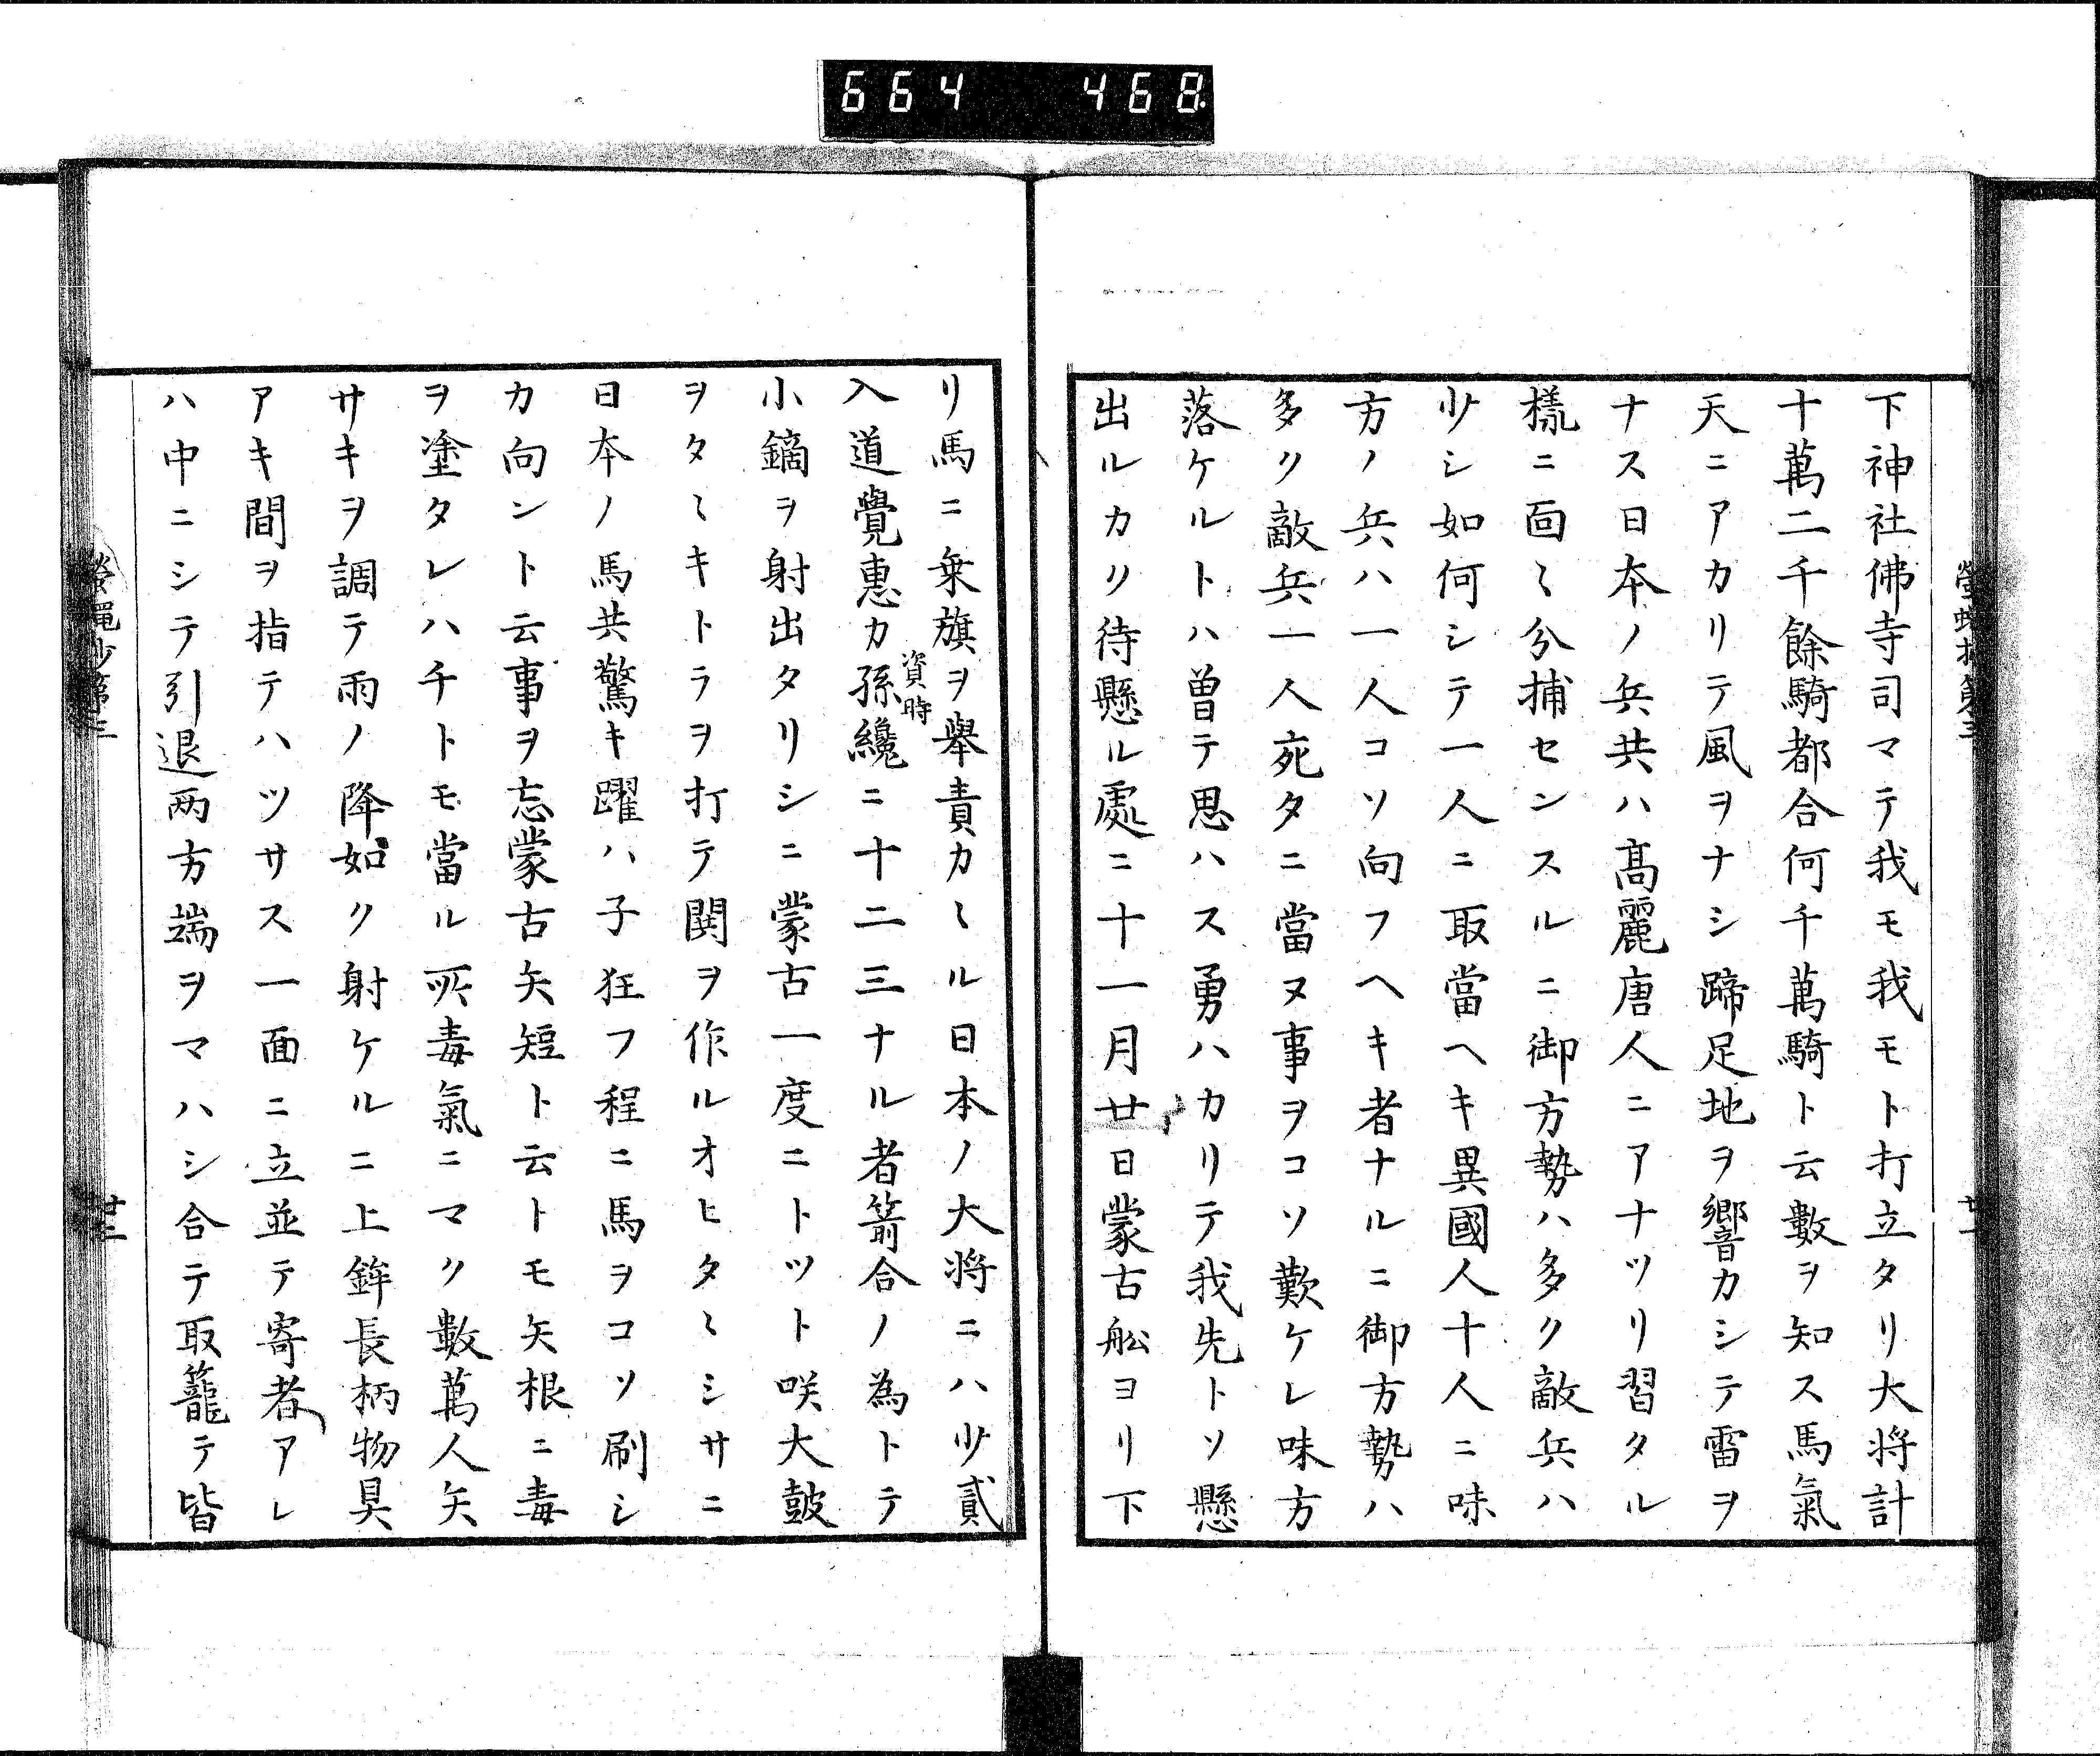 664 468
下神社佛寺司マテ我モ我モト打立タリ大将計
十萬二千餘騎都合何千萬騎ト云數ヲ知ス馬氣
天ニアカリテ風ヲナシ蹄足地ヲ響カシテ雷ヲ
ナス日本ノ兵共ハ髙麗唐人ニアナツリ習タル
樣ニ面〻分捕センスルニ御方勢ハ多ク敵兵ハ
少シ如何シテ一人ニ取當ヘキ異國人十人ニ味
方ノ兵ハ一人コソ向フヘキ者ナルニ御方勢ハ
多ク敵兵一人死タニ當ヌ事ヲコソ歎ケレ味方
落ケルトハ曽テ思ハス勇ハカリテ我先トソ懸
出ルカリ待懸ル處ニ十一月廿日蒙古舩ヨリ下
リ馬ニ乗旗ヲ舉責カヽル日本ノ大将ニハ少貳
入道覺惠カ孫資時纔ニ十二三ナル者箭合ノ為トテ
小鏑ヲ射出タリシニ蒙古一度ニトツト咲大皷
ヲタヽキトラヲ打テ鬨ヲ作ルオヒタヽシサニ
日本ノ馬共驚キ躍ハ子狂フ程ニ馬ヲコソ刷シ
カ向ント云事ヲ忘蒙古矢短ト云トモ矢根ニ毒
ヲ塗タレハチトモ當ル所毒氣ニマク數萬人矢
サキヲ調テ雨ノ降如ク射ケルニ上鉾長柄物具
アキ間ヲ指テハツサス一面ニ立並テ寄者アレ
ハ中ニシテ引退两方端ヲマハシ合テ取籠テ皆